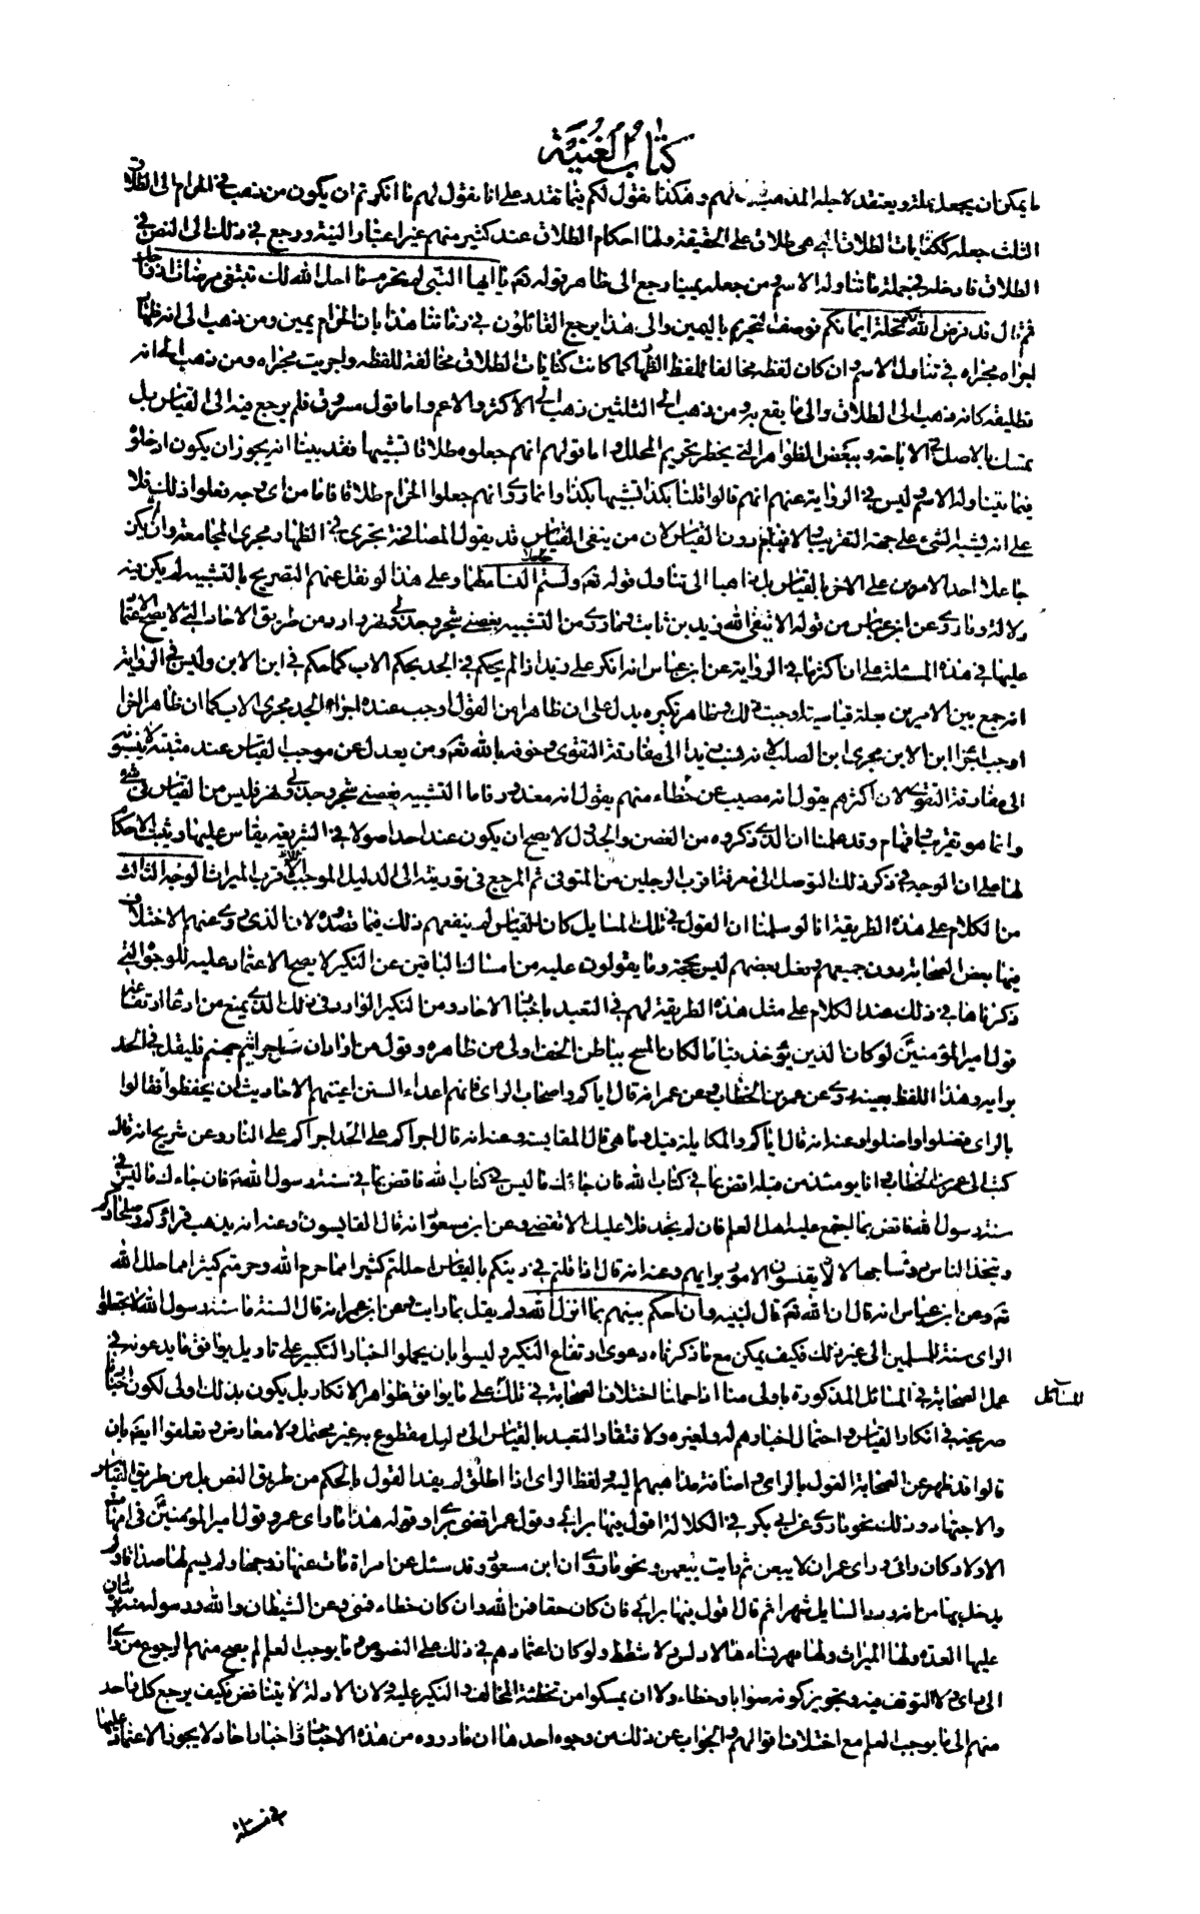 كتاب الغنية
ما يمكن ان يجعل علة ويعتقد لاجله المذهب لهم وهكذا يقول لكم فيما تقدد على انا نقول لهم ما انكرتم ان يكون من ذهب في الحرام الى الطلاق
الثلث جعله ككنايات الطلاق التي هي طلاق على الحقيقة ولها احكام الطلاق عند كثير منهم غير اعتبار النية ورجع في ذلك الى النص في
الطلاق فادخله في جملة ما تناوله الاسم ومن جعله يمينا رجع الى ظاهر قوله تع يا ايها النبي لم تحرم ما احل الله لك تبتغي مرضات ازواجك
ثم قال قد فرض الله لكم تحلة ايمانكم فوصف التحريم باليمين والى هذا يرجع القائلون في وقتنا هذا بان الحرام يمين ومن ذهب الى انه ظهار
اجراه مجراه في تناول الاسم وان كان لفظه مخالفا للفظ الظهار كما كانت كنايات الطلاق مخالفة للفظه واجريت مجراه ومن ذهب الى انه
تطليقة كانه ذهب الى الطلاق والى ما يقع به ومن ذهب الى الثلثين ذهب الى الاكثر والاعم واما قول مسروق فلم يرجع فيه الى القياس بل
تمسك بالاصل في الاباحة وببعض الظواهر التي يخطر تحريم المحلل واما قولهم انهم جعلوه طلاقا تشبيها فقد بينا انه يجوز ان يكون ادخلوه
فيما يتناوله الاسم وليس في الرواية عنهم انهم قالوا قلنا بكذا تشبيها بكذا وانما روى انهم جعلوا الحرام طلاقا فاما من اي وجه فعلوا ذلك فلا
على انه يشبه الشيء على جهة التقريب بالافهام دون القياس لان من ينفي القياس قد يقول المصافحة تجري في الظهار مجرى المجامعة وان لم يكن
جاعلا احد الامرين على الاخر بالقياس بل ذاهبا الى تناول قوله تع ولستم النساء لهما وعلى هذا لو نقل عنهم التصريح بالتشبيه لم يكن فيه
دلالة وما روى عن ابن عباس من قوله الا يتقي الله زيد بن ثابت وما روى من التشبيه بغصني شجر وجدولي نهر وارد من طريق الاحاد التي لا يصح الاعتماد
عليها في هذه المسئلة على ان اكثر ما في الرواية عن ابن عباس انه انكر على زيد اذ لم يحكم في الجد بحكم الاب كما حكم في ابن الابن وليس في الرواية
انه جمع بين الامرين بعلة قياسية اوجبت ذلك وظاهر نكيره يدل على ان ظاهرا من القول اوجب عنده اجراء الجد مجرى الاب كما ان ظاهرا اخر
اوجب اجراء ابن الابن مجرى ابن الصلب لانه نسب زيدا الى مفارقة التقوى وخوفه بالله تع ومن يعدل عن موجب القياس عند مثبتيه لا ينسبونه
الى مفارقة التقوى لان اكثرهم يقول انه مصيب عن خطاء منهم يقول انه معذور فاما التشبيه بغصني شجر وجدولي نهر فليس من القياس في شيء
وانما هو تقريب وافهام وقد علمنا ان الذي ذكروه من الغصن والجدول لا يصح ان يكون عند احد اصولا في الشريعة يقاس عليها ويثبت الاحكام
لها على ان الوجه في ذكر ذلك التوصل الى معرفة اقرب الرجلين من المتوفى ثم المرجع في توريثه الى الدليل الموجب لاقرب الميراث الوجه الثالث
من الكلام على هذه الطريقة انا لو سلمنا ان القول في تلك المسايل كان للقياس لم ينفعهم ذلك فيما قصدوه لان الذي روى عنهم الاختلاف
فيها بعض الصحابة دون جميعهم وفعل بعضهم ليس بحجة وما يقولون عليه من امساك الباقين عن النكير لا يصح الاعتماد عليه للوجوه التي
ذكرناها في ذلك عند الكلام على مثل هذه الطريقة لهم في التعبد باخبار الاحاد ومن النكير الوارد في ذلك الذي يمنع من ادعاء ارتفاعه
قول امير المؤمنين لو كان الدين يؤخذ قياسا لكان المسح بباطن الخف اولى من ظاهره وقوله من اراد ان يتقحم جراثيم جهنم فليقل في الجد
برايه وهذا اللفظ بعينه روى عن عمر بن الخطاب وعن عمر انه قال اياكم واصحاب الراى فانهم اعداء السنن اعيتهم الاحاديث ان يحفظوها فقالوا
بالراى فضلوا واضلوا وعنه انه قال اياكم والمكايلة قيل وما هي قال المقايسة وعنه انه قال اجراكم على الجد اجراكم على النار وعن شريح انه قال
كتب الى عمر بن الخطاب وانا يومئذ من قبله اقض بما في كتاب الله فان جاءك ما ليس في كتاب الله فاقض بما في سنة رسول الله ص فان جاءك ما ليس في
سنة رسول الله فاقض بما اجمع عليه اهل العلم فان لم تجد فلا عليك الا تقضي وعن ابن مسعود انه قال القايسون وعنه انه يذهب قراؤكم وصلحاؤكم
ويتخذ الناس رؤساء جهالا يقيسون الامور برايهم وعنه انه قال اذا قلتم في دينكم بالقياس احللتم كثيرا مما حرم الله وحرمتم كثيرا مما حلل الله
تع وعن ابن عباس انه قال ان الله تع قال لنبيه وان احكم بينهم بما انزل الله ولم يقل بما رايت وعن ابن عمر انه قال السنة ما سنه رسول الله لا تجعلوا
الراى سنة للمسلمين الى غير ذلك فكيف يمكن مع ما ذكرناه دعوى ارتفاع النكير وليسوا بان يحملوا اخبار النكير على تاويل يوافق ما يدعونه في
عمل الصحابة في المسائل المذكورة باولى منا اذا حملنا اختلاف الصحابة في تلك على ما يوافق ظواهر الانكار بل يكون بذلك اولى لكون اخبارنا
المسائل
صريحة في انكار القياس واحتمال اخبارهم له ولغيره ولافتقار التعبد بالقياس الى دليل مقطوع به غير محتمل ولا معارض وتعلقوا ايضا بان
قالوا قد ظهر عن الصحابة القول بالراى واضافة مذاهبهم اليه ولفظ الراى اذا اطلق لم يفد القول بالحكم من طريق النص بل من طريق القياس
والاجتهاد وذلك نحو ما روى عن ابي بكر في الكلالة اقول فيها برائي وقول عمر اقضي برائي وقوله هذا ما راى عمر وقول امير المؤمنين في امهات
الاولاد كان رائي وراى عمر ان لا يبعن ثم رايت بيعهن ونحو ما روى ان ابن مسعود وقد سئل عن امراة مات عنها زوجها ولم يسم لها صداقا ولم
يدخل بها من انه ردد السايل شهرا ثم قال اقول فيها برائي فان كان حقا فمن الله وان كان خطاء فمني ومن الشيطان والله ورسوله منه بريئان
عليها العدة ولها الميراث ولها مهر نسائها لا وكس ولا شطط ولو كان اعتمادهم في ذلك على النصوص وما يوجب العلم لم يصح منهم الرجوع من راى
الى راى ولا التوقف فيه وتجويز كونه صوابا وخطاء ولا ان يمسكوا من تخطئة المخالف والنكير عليه ولان الادلة لا يتناقض فكيف يرجع كل واحد
منهم الى ما يوجب العلم مع اختلاف اقوالهم والجواب عن ذلك من وجوه احدها ان ما رووه من هذه الاخبار اخبار احاد لا يجوز الاعتماد عليها